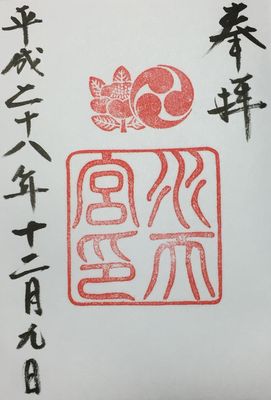 奉拝
水天宮印
平成二十八年十二月九日